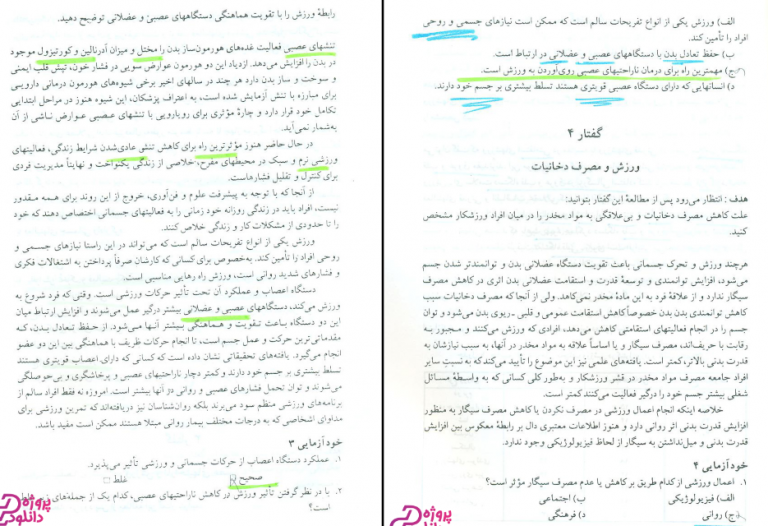 رابطهٔ ورزش را با تقویت هماهنگی دستگاههای عصبی و عضلانی توضیح دهید.
تنشهای عصبی فعالیت غده‌های هورمون‌ساز بدن را مختل و میزان آدرنالین و کورتیزول موجود
در بدن را افزایش می‌دهد. ازدیاد این دو هورمون عوارض سویی در فشار خون، تپش قلب ایمنی
و سوخت و ساز بدن دارد هر چند در سالهای اخیر برخی شیوه‌های هورمون درمانی دارویی
برای مبارزه با تنش آزمایش شده است، به اعتراف پزشکان، این شیوه هنوز در مراحل ابتدایی
تکامل خود قرار دارد و چارهٔ مؤثری برای رویارویی با تنشهای عصبی عوارض ناشی از آن
به‌شمار نمی‌آید.
در حال حاضر هنوز مؤثرترین راه برای کاهش تنش عادی‌شدن شرایط زندگی، فعالیتهای
ورزشی نرم و سبک در محیطهای مفرح، خلاصی از زندگی یکنواخت و نهایتاً مدیریت فردی
برای کنترل و تقلیل فشارهاست.
از آنجا که با توجه به پیشرفت علوم و فن‌آوری، خروج از این روند برای همه مقدور
نیست، افراد باید در زندگی روزانه خود زمانی را به فعالیتهای جسمانی اختصاص دهند که خود
را تا حدودی از مشکلات کار و زندگی خلاص کنند.
ورزش یکی از انواع تفریحات سالم است که می‌تواند در این راستا نیازهای جسمی و
روحی افراد را تأمین کند. به‌خصوص برای کسانی که کارشان صرفاً پرداختن به اشتغالات فکری
و فشارهای شدید روانی است، ورزش راه رهایی مناسبی است.
دستگاه اعصاب و عملکرد آن تحت تأثیر حرکات ورزشی است. وقتی که فرد شروع به
ورزش می‌کند، دستگاههای عصبی و عضلانی بیشتر درگیر عمل می‌شوند و افزایش ارتباط میان
این دو دستگاه باعث تقویت و هماهنگی بیشتر آنها می‌شود. از حفظ تعادل بدن، که
مقدماتی‌ترین حرکت و عمل جسم است، تا انجام حرکات ظریف با هماهنگی بین این دو عضو
انجام می‌گیرد. یافته‌های تحقیقاتی نشان داده است که کسانی که دارای اعصاب قویتری هستند
تسلط بیشتری بر جسم خود دارند و کمتر دچار ناراحتیهای عصبی و پرخاشگری و بی‌حوصلگی
می‌شوند و توان تحمل فشارهای عصبی و روانی در آنها بیشتر است. امروزه نه فقط افراد سالم از
برنامه‌های ورزشی منظم سود می‌برند بلکه روان‌شناسان نیز دریافته‌اند که تمرین ورزشی برای
مداوای اشخاصی که به درجات مختلف بیمار روانی مبتلا هستند ممکن است مفید باشد.
خودآزمایی ۳
۱. عملکرد دستگاه اعصاب از حرکات جسمانی و ورزشی تأثیر می‌پذیرد.
صحیح غلط
۲. با در نظر گرفتن تأثیر ورزش در کاهش ناراحتیهای عصبی، کدام یک از جمله‌های زیر
است؟
پروژه دانلود
الف) ورزش یکی از انواع تفریحات سالم است که ممکن است نیازهای جسمی و روحی
افراد را تأمین کند.
ب) حفظ تعادل بدن با دستگاههای عصبی و عضلانی در ارتباط است.
ج) مهمترین راه برای درمان ناراحتیهای عصبی روی‌آوردن به ورزش است.
د) انسانهایی که دارای دستگاه عصبی قویتری هستند تسلط بیشتری بر جسم خود دارند.
گفتار ۴
ورزش و مصرف دخانیات
هدف : انتظار می‌رود پس از مطالعهٔ این گفتار بتوانید:
علت کاهش مصرف دخانیات و بی‌علاقگی به مواد مخدر را در میان افراد ورزشکار مشخص
کنید.
هرچند ورزش و تحرک جسمانی باعث تقویت دستگاه عضلانی بدن و توانمندتر شدن جسم
می‌شود، افزایش توانمندی و توسعهٔ قدرت و استقامت عضلانی بدن اثری در کاهش مصرف
سیگار ندارد و از علاقهٔ فرد به این مادهٔ مخدر نمی‌کاهد. ولی از آنجا که مصرف دخانیات سبب
کاهش توانمندی بدن بدن خصوصاً کاهش استقامت عمومی و قلبی ـ ریوی بدن می‌شود و توان
جسم را در انجام فعالیتهای استقامتی کاهش می‌دهد، افرادی که ورزش می‌کنند و مجبور به
رقابت با حریف‌اند، مصرف سیگار و یا اساساً علاقه به مواد مخدر در آنها، به سبب نیازشان به
قدرت بدنی بالاتر، کمتر است. یافته‌های علمی نیز این موضوع را تأیید می‌کند که به نسبت سایر
افراد جامعه مصرف مواد مخدر در قشر ورزشکار و به‌طور کلی کسانی که به واسطهٔ مسائل
شغلی بیشتر جسم خود را درگیر فعالیت می‌کنند کمتر است.
خلاصه اینکه انجام اعمال ورزشی در مصرف نکردن یا کاهش مصرف سیگار به منظور
افزایش قدرت بدنی اثر روانی دارد و هنوز اطلاعات معتبری دال بر رابطهٔ معکوس بین افزایش
قدرت بدنی و میل‌نداشتن به سیگار از لحاظ فیزیولوژیکی وجود ندارد.
خودآزمایی ۴
۱. اعمال ورزشی از کدام طریق بر کاهش یا عدم مصرف سیگار مؤثر است؟
الف) فیزیولوژیکی ب) اجتماعی
ج) روانی د) فرهنگی
پروژه دانلود